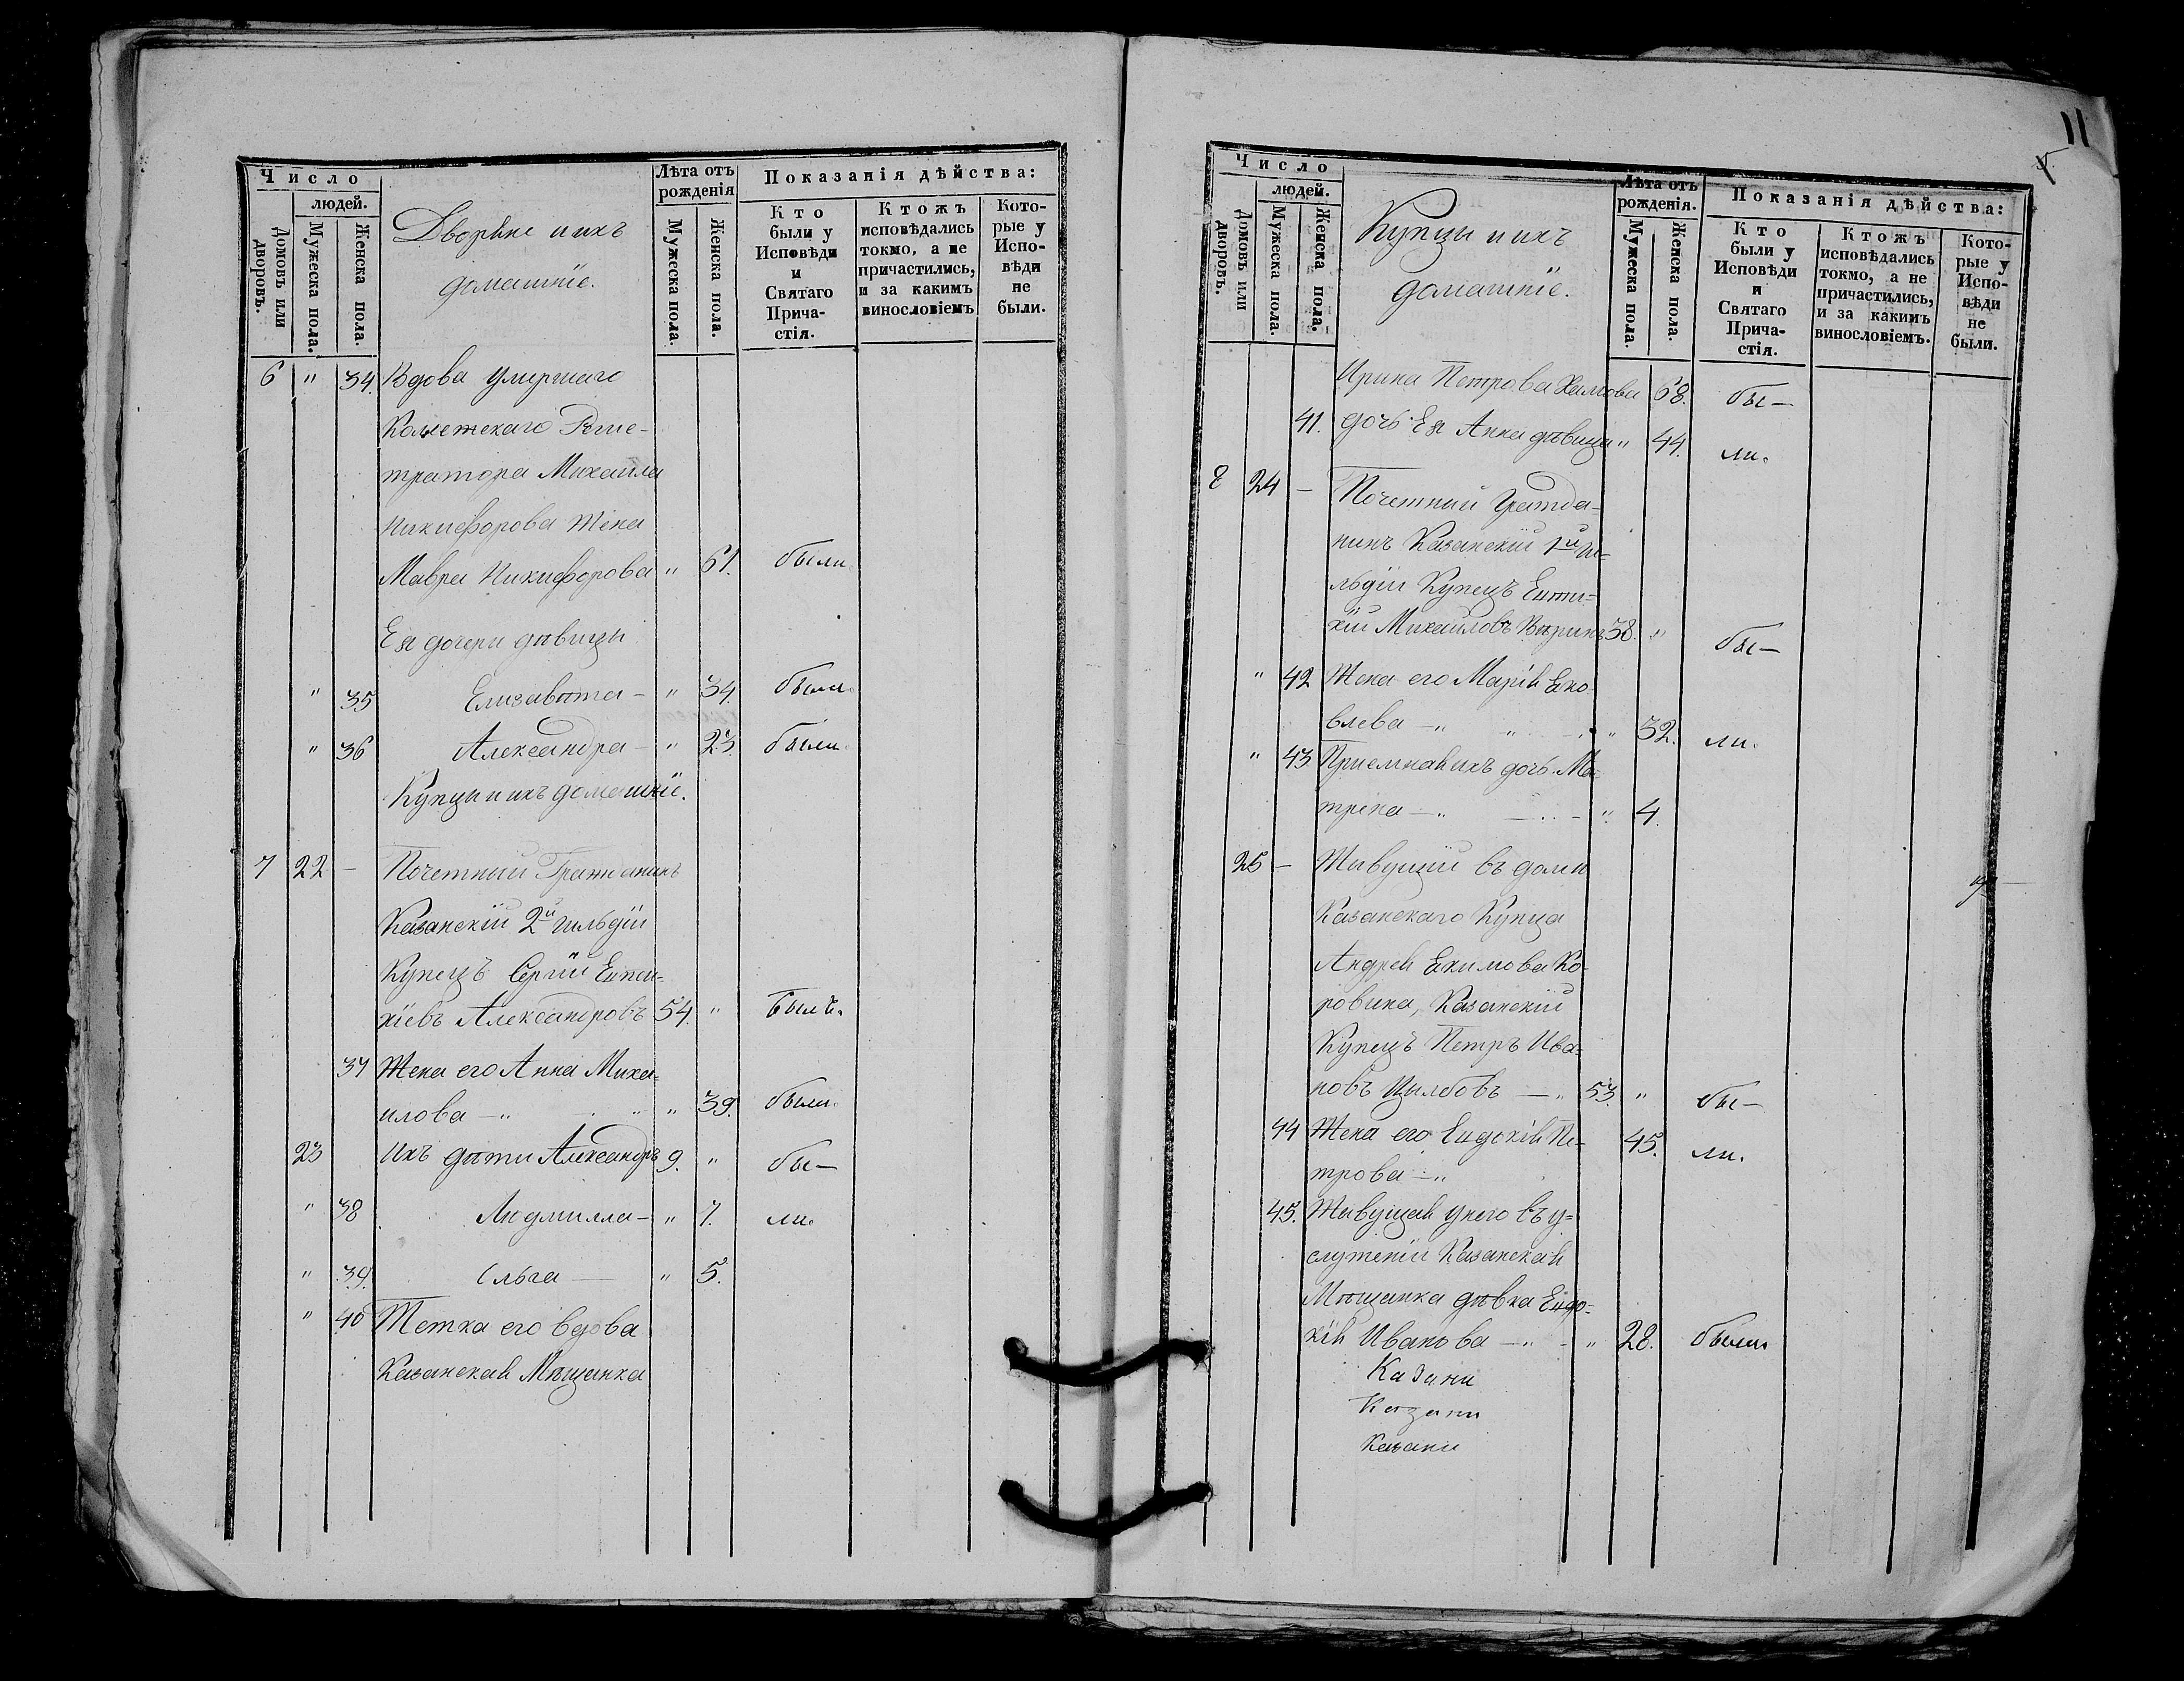 Число
людей.
Домовъ или дворовъ.
Мужеска пола.
Женска пола.
Дворяне и ихъ
домашніе.
Лѣта отъ
рожденія
Мужеска пола.
Женска пола.
Показанія дѣйства:
Кто
были у
Исповѣди
и
Святаго
Прича-
стія.
Ктожъ
исповѣдались
токмо, а не
причастились,
и за какимъ
винословіемъ
Кото-
рые у
Испо-
вѣди
не
были.
6 " 34. Вдова умершаго
Коллежскаго Регис-
тратора Михаила
Никифорова жена
Мавра Никифорова " 61. были.
Ея дочери дѣвицы
" 35 Елизавѣта — " 34. были.
" 36 Александра — " 23. были.
Купцы и ихъ домашніе.
7 22 — Почетный Гражданинъ
Казанскій 2й гильдіи
Купецъ Сергій Евпси-
хіевъ Александровъ 54. " были.
37 Жена его Анна Михаи-
илова — " " " 39. были.
23 Ихъ дѣти Александръ 9. " бы-
" 38 Людмилла — " 7. ли.
" 39. Ольга — " 5.
" 40 Тетка его вдова
Казанская Мѣщанка
11
Число
людей.
Домовъ или дворовъ.
Мужеска пола.
Женска пола.
Купцы и ихъ
домашніе.
Лѣта отъ
рожденія.
Мужеска пола.
Женска пола.
Показанія дѣйства:
Кто
были у
Исповѣди
и
Святаго
Прича-
стія.
Ктожъ
исповѣдались
токмо, а не
причастились,
и за какимъ
винословіемъ.
Кото-
рые у
Испо-
вѣди
не
были.
Ирина Петрова 68. бы-
41. дочь Ея Анна дѣвица " 44. ли.
8 24 — Почетный Гражда-
нинъ Казанскій 1й ги-
льдіи Купецъ Евти-
хій Михайловъ 38. " бы-
" 42 Жена его Марія Яко-
влева — " " " 32. ли.
" 43 Приемная ихъ дочь Ма-
трена — " — " 4.
25 — Живущій въ домѣ
Казанскаго Купца
Андрея Екимова Ко-
ровина, Казанскій
Купецъ Петръ Ива-
новъ — " 53. " бы-
44 Жена его Евдокія Пе- 45. ли.
трова — "
45. Живущая у него въ у-
служеніи Казанская
Мѣщанка дѣвка Евдо-
кія Иванова — " - " 28. были
Казани
Казани
Казани